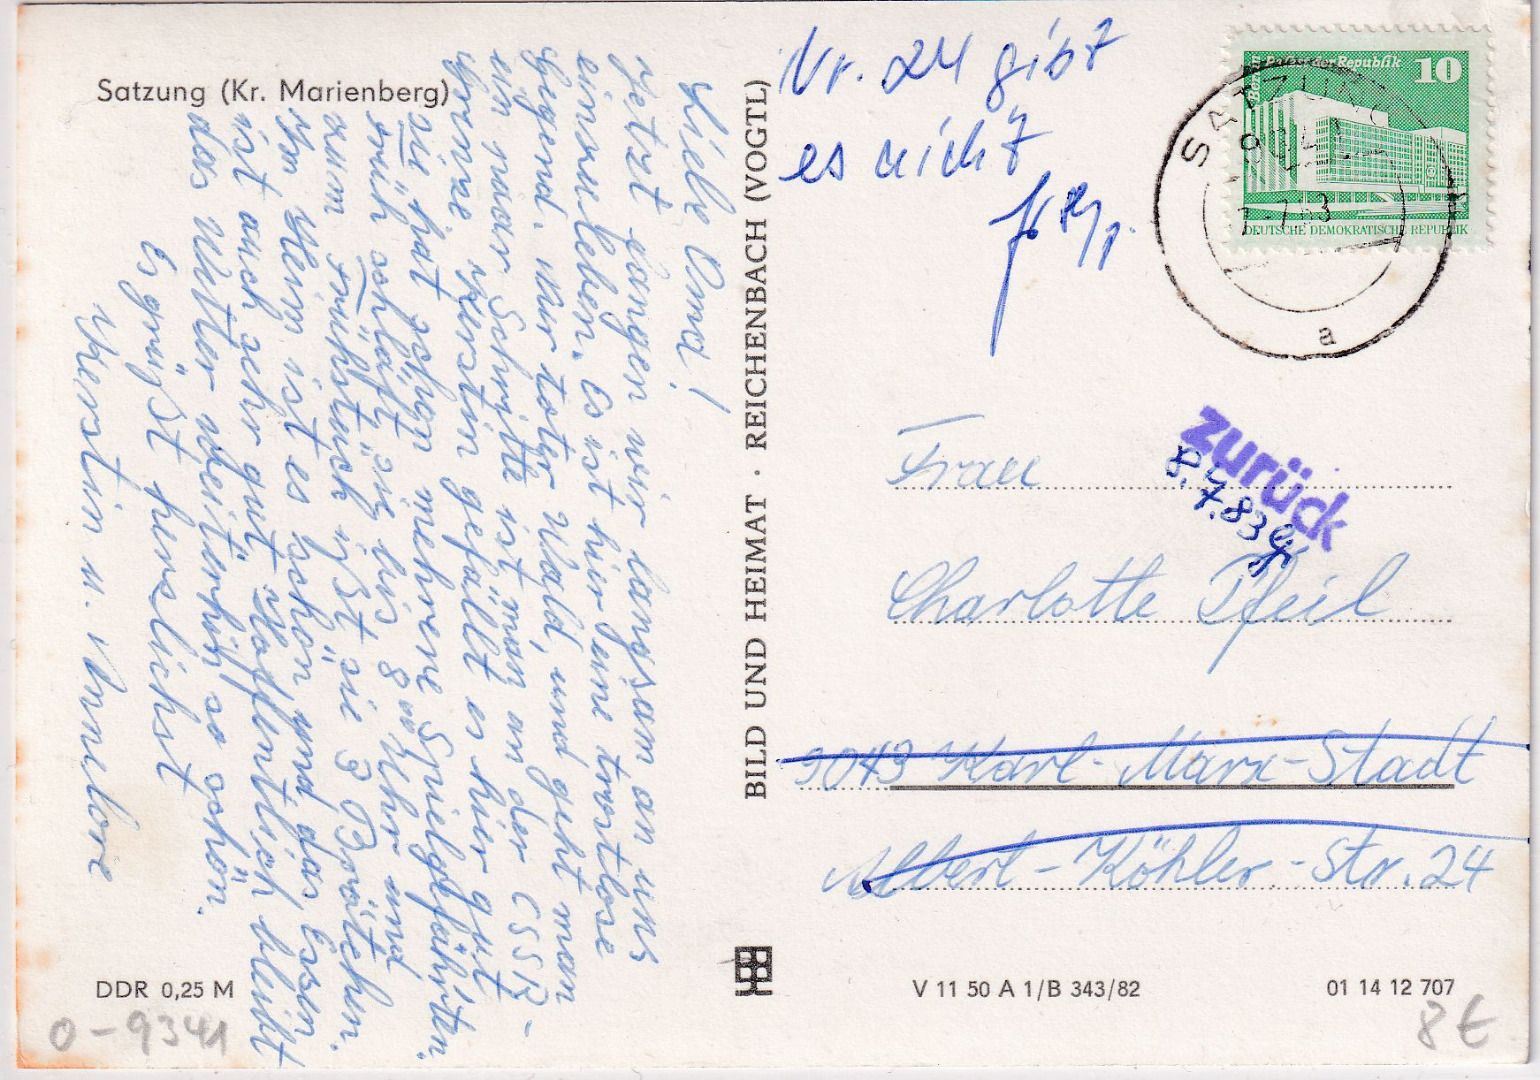 Satzung (Kr. Marienberg)
Liebe Oma!
Jetzt fangen wir langsam an uns
einzuleben. Es ist hier eine trostlose
Gegend. Nur toter Wald, und geht man
ein paar Schritte ist man an der CSSR-
Grenze. Kerstin gefällt es hier gut
sie hat schon mehrere Spielgefährten.
Früh schläft sie bis 8⁰⁰ Uhr und
zum Frühstück ißt sie 3 Brötchen.
Im Heim ist es schön und das Essen
ist auch sehr gut. Hoffentlich bleibt
das Wetter weiterhin so schön.
Es grüßt herzlichst
Kerstin u. Annelore
DDR 0,25 M
0-9341
BILD UND HEIMAT · REICHENBACH (VOGTL)
Nr. 24 gibt
es nicht
Berlin Palast der Republik 10
DEUTSCHE DEMOKRATISCHE REPUBLIK
SATZUNG
9341
-7.83
a
zurück
8.7.83
Frau
Charlotte Pfeil
9043 Karl-Marx-Stadt
Albert-Köhler-Str. 24
V 11 50 A 1/B 343/82
01 14 12 707
8 €